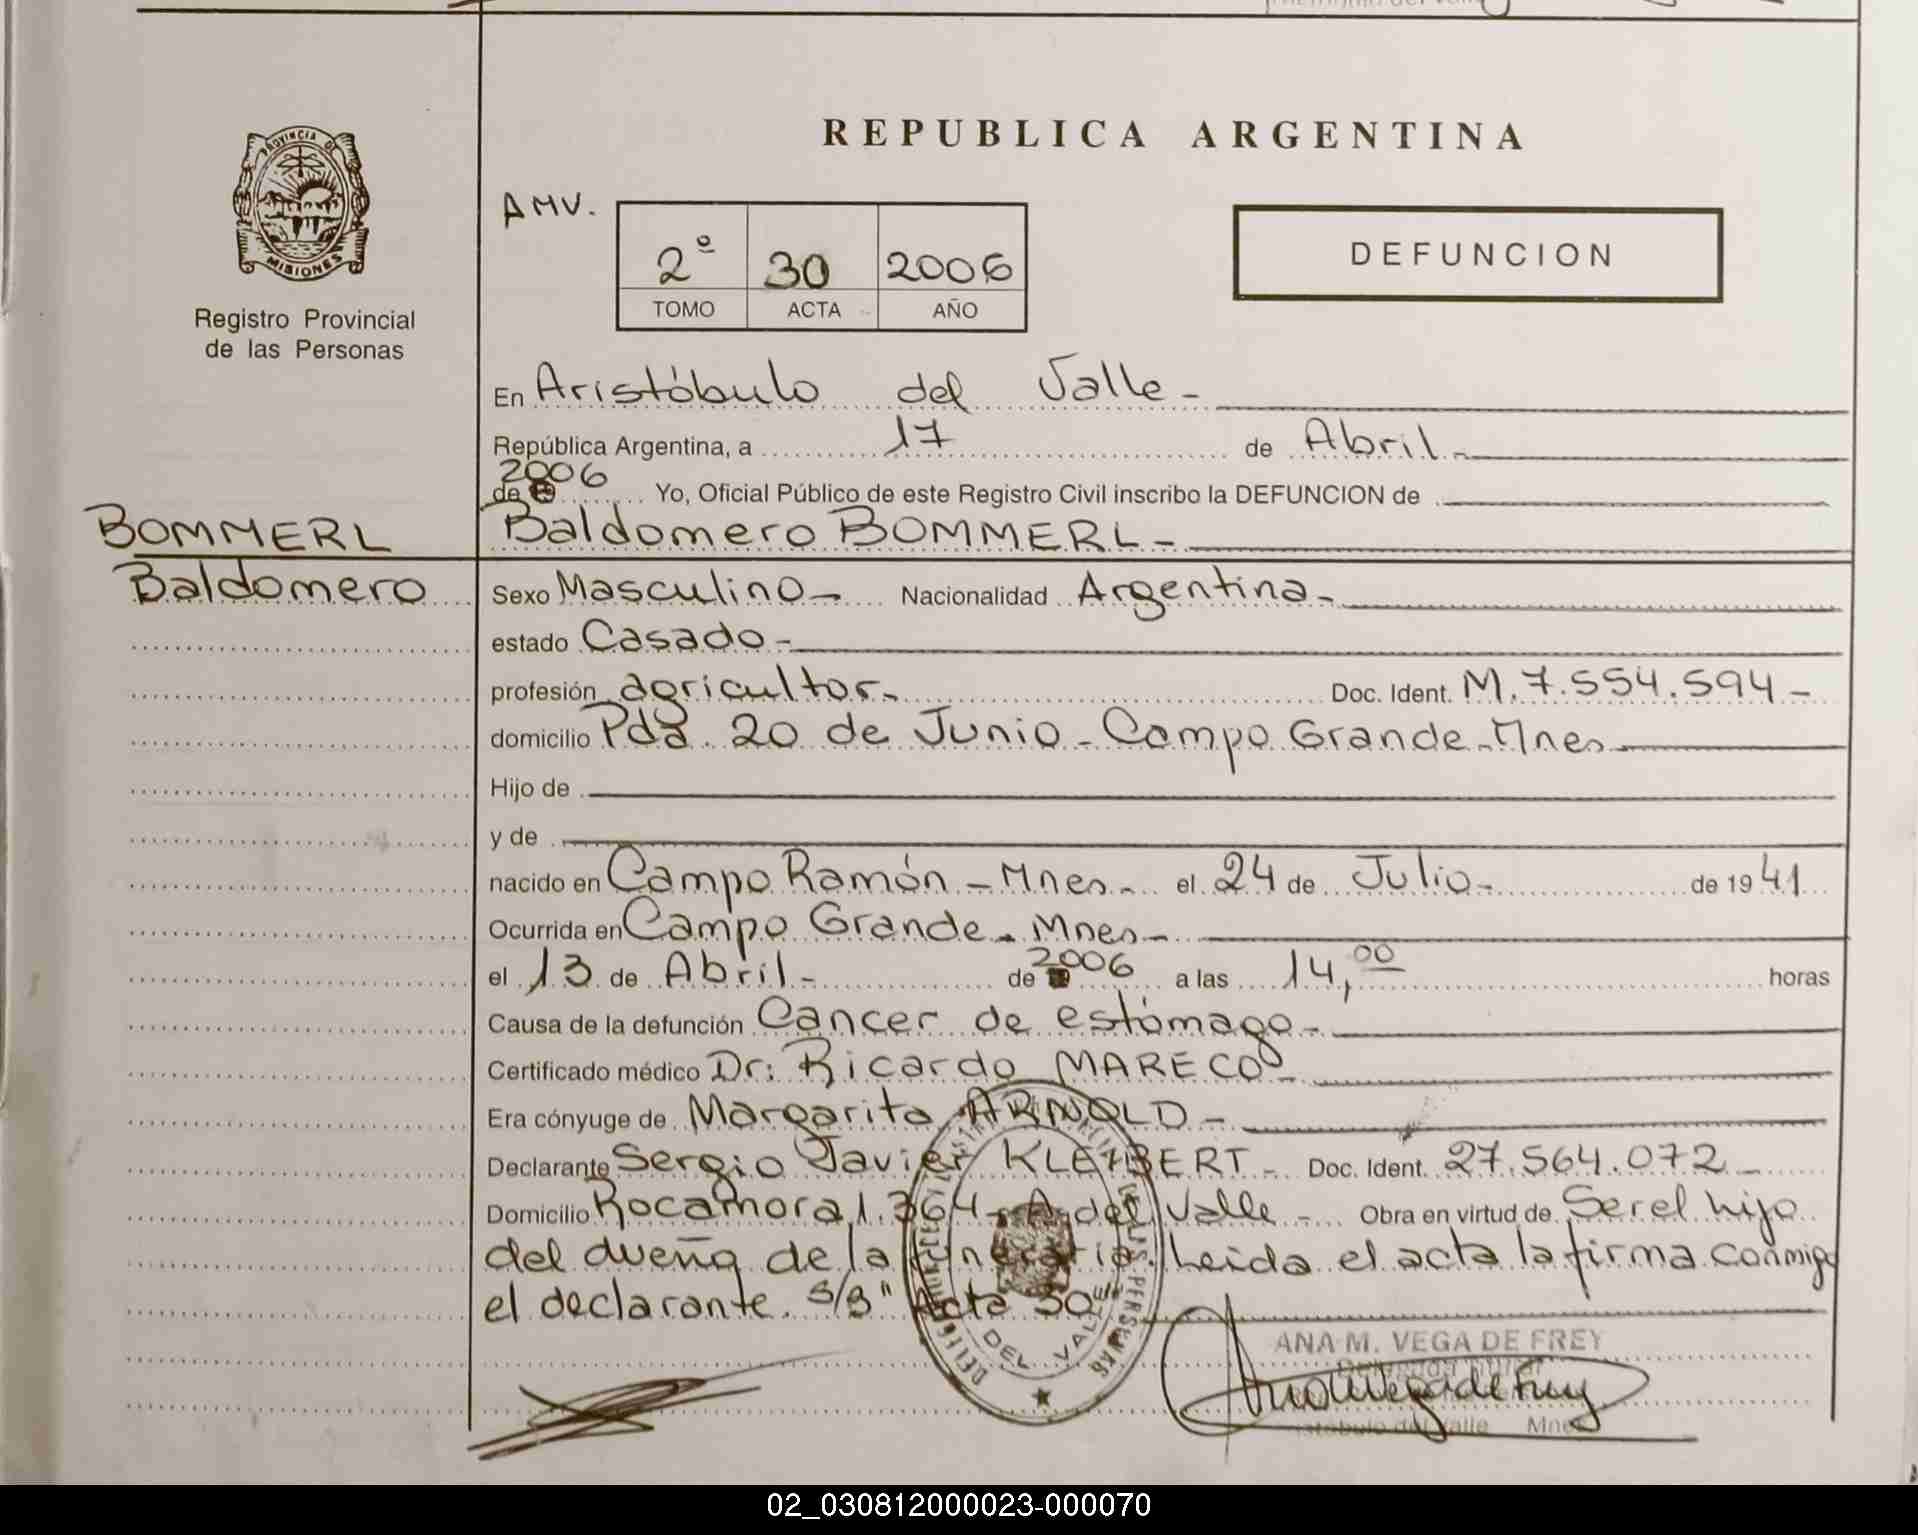 REPUBLICA ARGENTINA
PROVINCIA DE
MISIONES
Registro Provincial
de las Personas
AMV.
2º 30 2006
TOMO ACTA AÑO
DEFUNCION
En Aristóbulo del Valle -
República Argentina, a 17 de Abril -
2006
de 19 Yo, Oficial Público de este Registro Civil inscribo la DEFUNCION de
BOMMERL
Baldomero
Baldomero BOMMERL -
Sexo Masculino - Nacionalidad Argentina -
estado Casado -
profesión agricultor - Doc. Ident. M. 7.554.594 -
domicilio Pda. 20 de Junio - Campo Grande - Mnes
Hijo de
y de
nacido en Campo Ramón - Mnes - el 24 de Julio - de 1941
Ocurrida en Campo Grande - Mnes -
el 13 de Abril - de 2006 a las 14,00 horas
Causa de la defunción Cancer de estómago -
Certificado médico Dr: Ricardo MARECO -
Era cónyuge de Margarita ARNOLD -
Declarante Sergio Javier Doc. Ident. 27.564.072 -
Domicilio Rocamora 1.364 - A. del Valle - Obra en virtud de Ser el hijo
del dueño de la funeraria. Leida el acta la firma conmigo
el declarante. S/B" Acta 30"
DEL VALLE
ANA M. VEGA DE FREY
Delegada
Aristóbulo del Valle Mnes
02_030812000023-000070